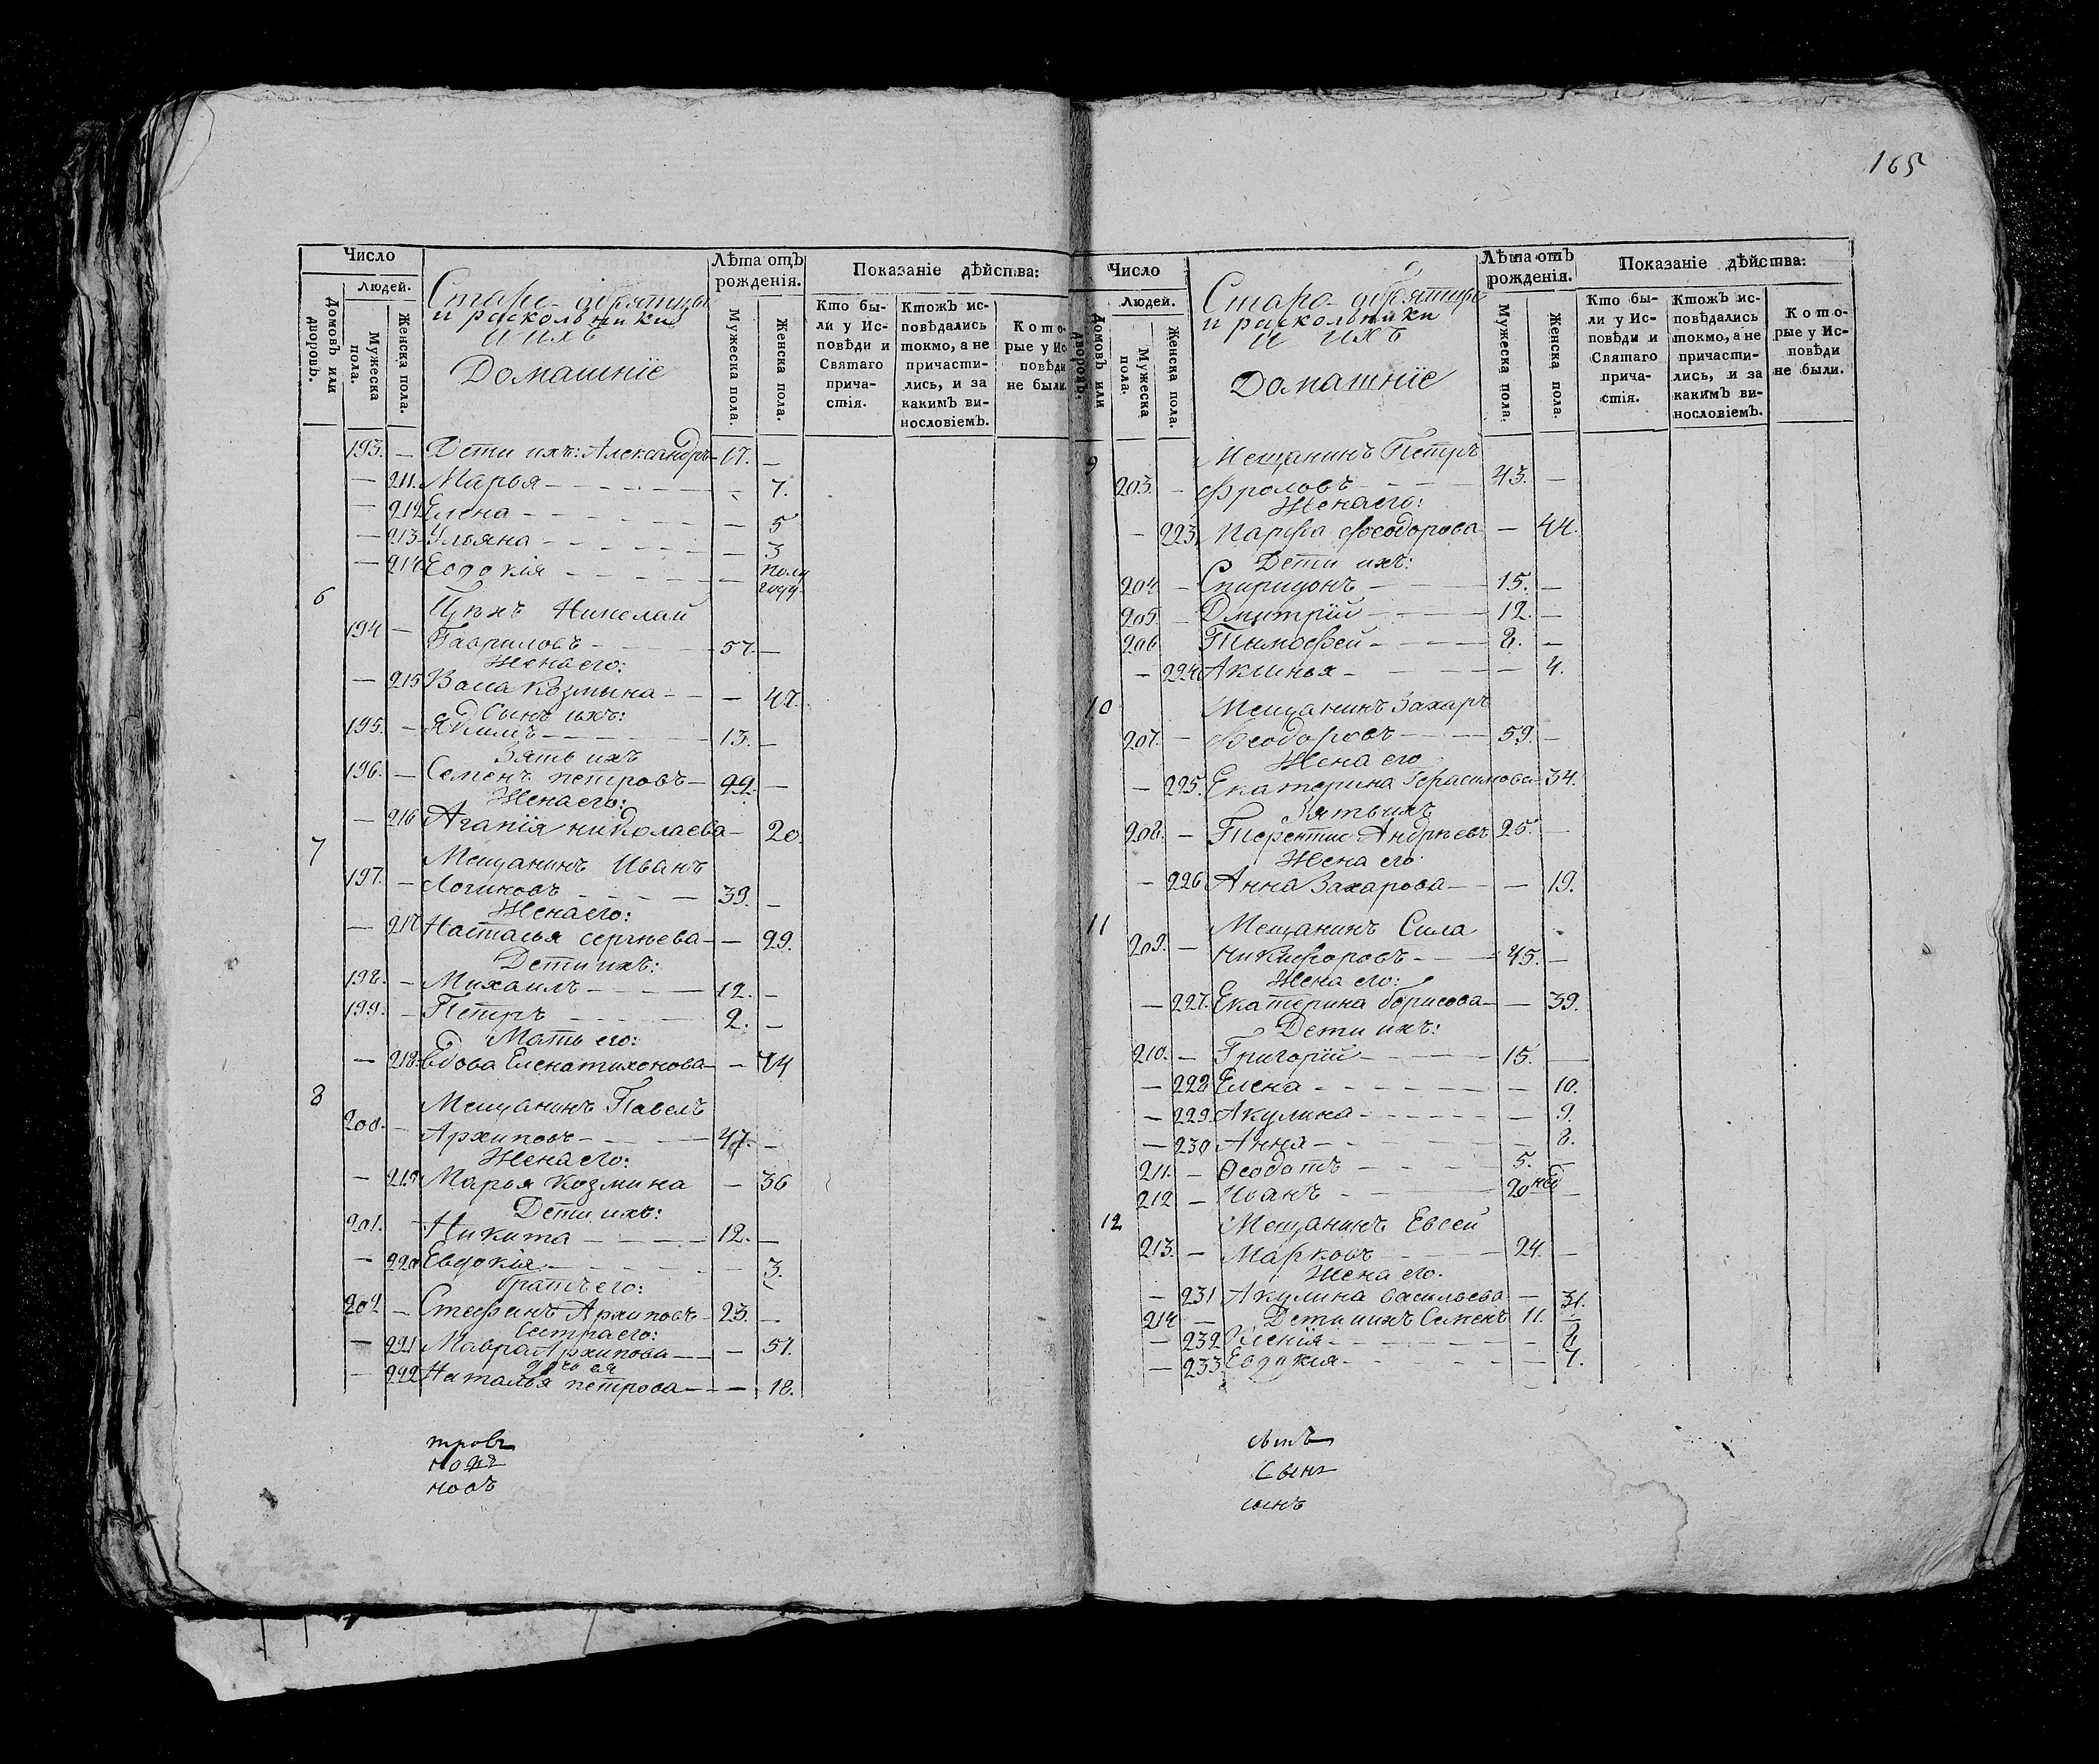 165
Число
Людей.
Домовъ или дворовъ.
Мужеска пола.
Женска пола.
Старо-обрятцы
и раскольники
и ихъ
Домашнїе
Лѣта отъ рожденїя.
Мужеска пола.
Женска пола.
Показанїе дѣйства:
Кто бы-
ли у Ис-
повѣди и
Святаго
прича-
стїя.
Ктожъ ис-
повѣдались
токмо, а не
причасти-
лись, и за
какимъ ви-
нословїемъ.
Кото-
рые у Ис-
повѣди
не были.
193. — Дети ихъ: Александръ 17. —
— 211. Марья — 7.
— 212 Елена — 5
— 213 Ульяна — 3
— 214 Евдокїя — полу
году
6
Николай
194 — Гавриловъ 57. —
Жена его:
— 215 Козмина — 47.
Сынъ ихъ:
195. — Якимъ 13. —
Зять ихъ
196. — Семенъ петровъ 22 —
Жена его:
— 216 Агапїя николаева 20.
7 Мещанинъ Иванъ
197. — Логиновъ 39. —
Жена его:
— 217 Настасья сергѣева — 29.
Дети ихъ:
198. — Михаилъ 12. —
199. — Петръ 2. —
Мать его:
— 218 вдова Елена тихонова — 74
8 Мещанинъ Павелъ
200. — Архиповъ 47. —
Жена его:
— 219 Марья Козмина — 36
Дети ихъ:
201. — Никита 12. —
— 220 Евдокїя — 3.
братъ его:
202 — Стефанъ Архиповъ 23. —
Сестра его:
— 221 Мавра Архипова — 51.
дочь ея
— 222 Наталья петрова — 18.
тровъ
новъ
Число
Людей.
Домовъ или дворовъ.
Мужеска пола.
Женска пола.
Старо-обрятцы
и раскольники
и ихъ
Домашнїе
Лѣта отъ рожденїя.
Мужеска пола.
Женска пола.
Показанїе дѣйства:
Кто бы-
ли у Ис-
повѣди и
Святаго
прича-
стїя.
Ктожъ ис-
повѣдались
токмо, а не
причасти-
лись, и за
какимъ ви-
нословїемъ.
Кото-
рые у Ис-
повѣди
не были.
9 Мещанинъ Петръ
203. — Фроловъ 43. —
Жена его:
— 223. Марфа Феодорова — 44.
Дети ихъ:
204 — Спиридонъ 15. —
205 — Дмитрїй 12. —
206 Тимофей 8. —
— 224 Акинья — 4.
10 Мещанинъ Захаръ
207. — Феодоровъ 59. —
Жена его
— 225. Екатерина Герасимова 34.
Зять ихъ
208. — Терентие Андрѣевъ 25. —
Жена его
— 226 Анна Захарова — 19.
11 Мещанинъ Сила
209. — Никифоровъ 45. —
Жена его:
— 227. Екатерина борисова — 39.
Дети ихъ:
210. — Григорїй 15. —
— 228 Елена — 10.
— 229 Акулина — 9.
— 230 Анна — 8.
211. — Ѳеодотъ 5. —
212 — Иванъ 20 нед —
12 Мещанинъ Евсей
213. — Марковъ 24. —
Жена его.
— 231 Акулина васильева — 31.
214 — Дети ихъ Семенъ 11. —
— 232 Ксенїя — 8
— 233 Евдокїя — 7.
сынъ
Сынъ
сынъ